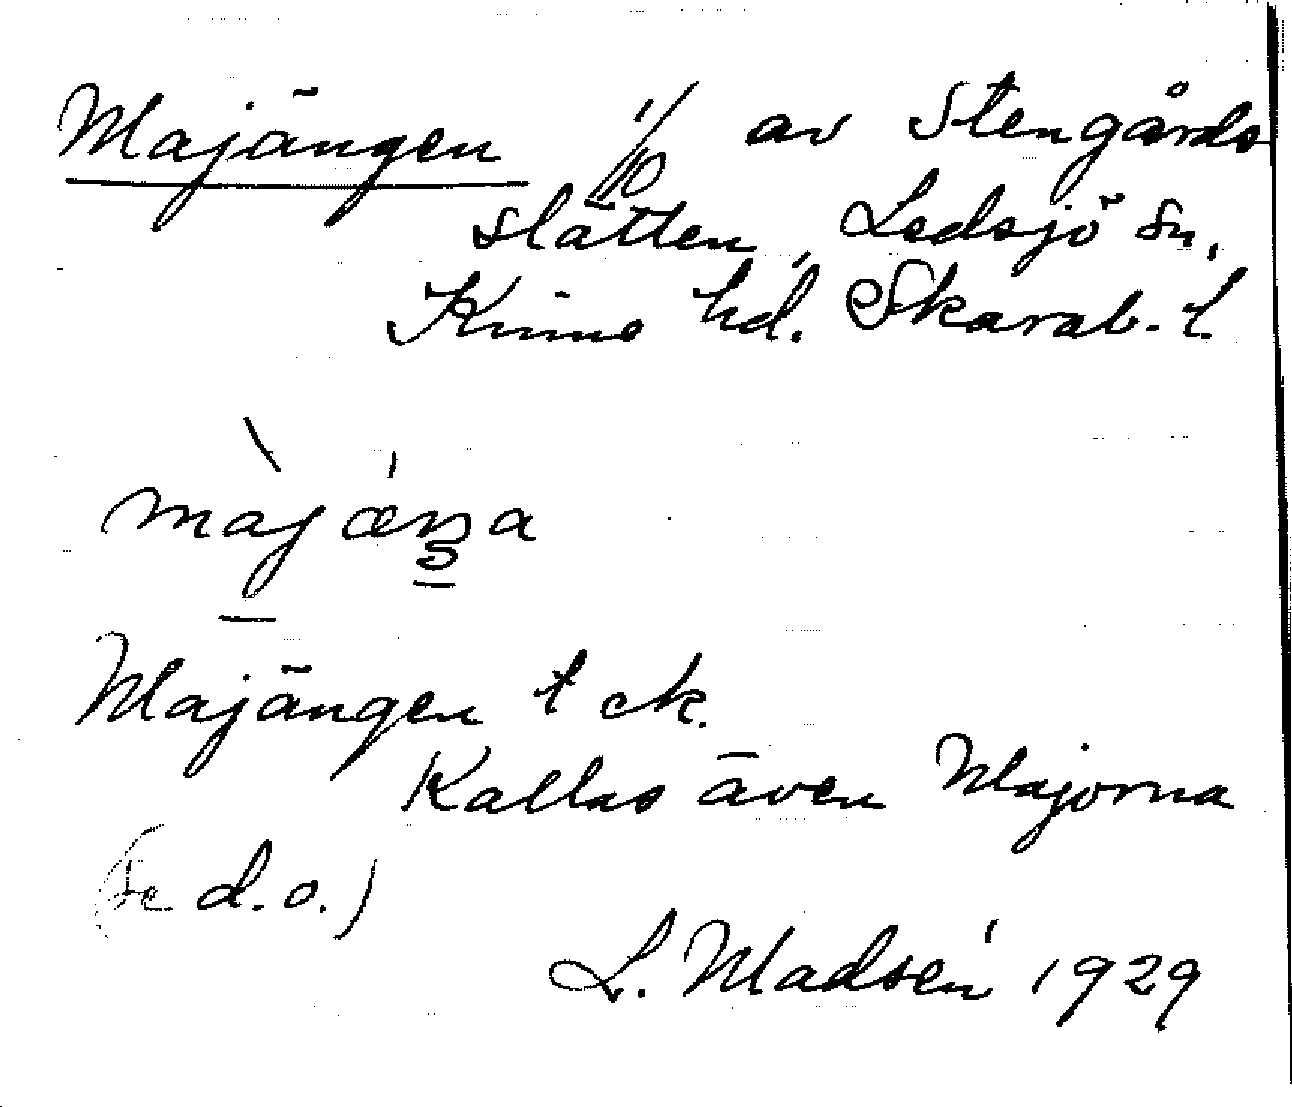 Majängen 1/10 av Stengårds
slätten, Ledsjö sn,
Kinne hd. Skarab. l.
màjæŋa
Majängen t ek.
Kallas även Majorna
(se d.o.)
L. Madsén 1929